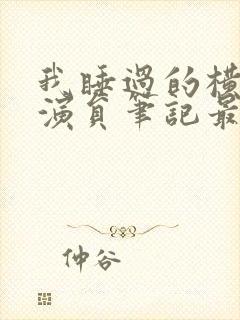 我睡過的橫
演員筆記最
仲谷